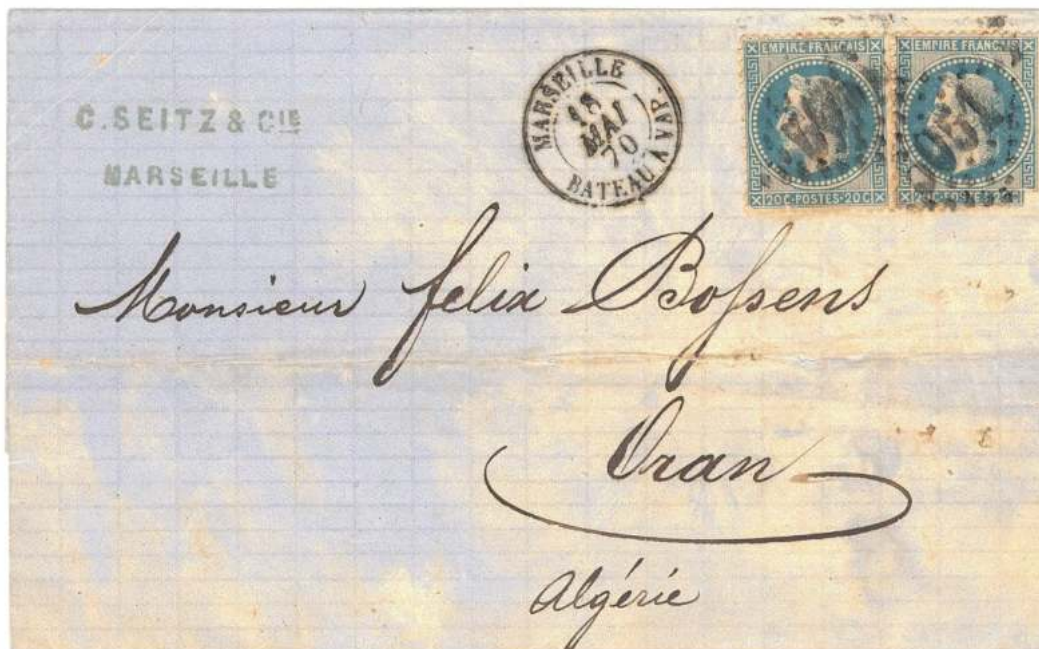 C. SEITZ & CIE
MARSEILLE
MARSEILLE
18
MAI
70
BATEAU A VAP.
EMPIRE FRANCAIS
20C·POSTES·20C
EMPIRE FRANCAIS
POSTES
Monsieur felix Bossens
Oran
Algérie